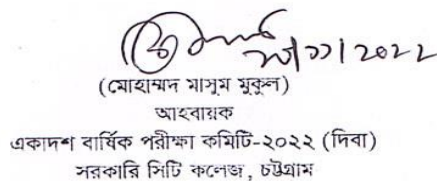 ২২/১১/২০২২
(মোহাম্মদ মাসুম মুকুল)
আহবায়ক
একাদশ বার্ষিক পরীক্ষা কমিটি-২০২২ (দিবা)
সরকারি সিটি কলেজ, চট্টগ্রাম